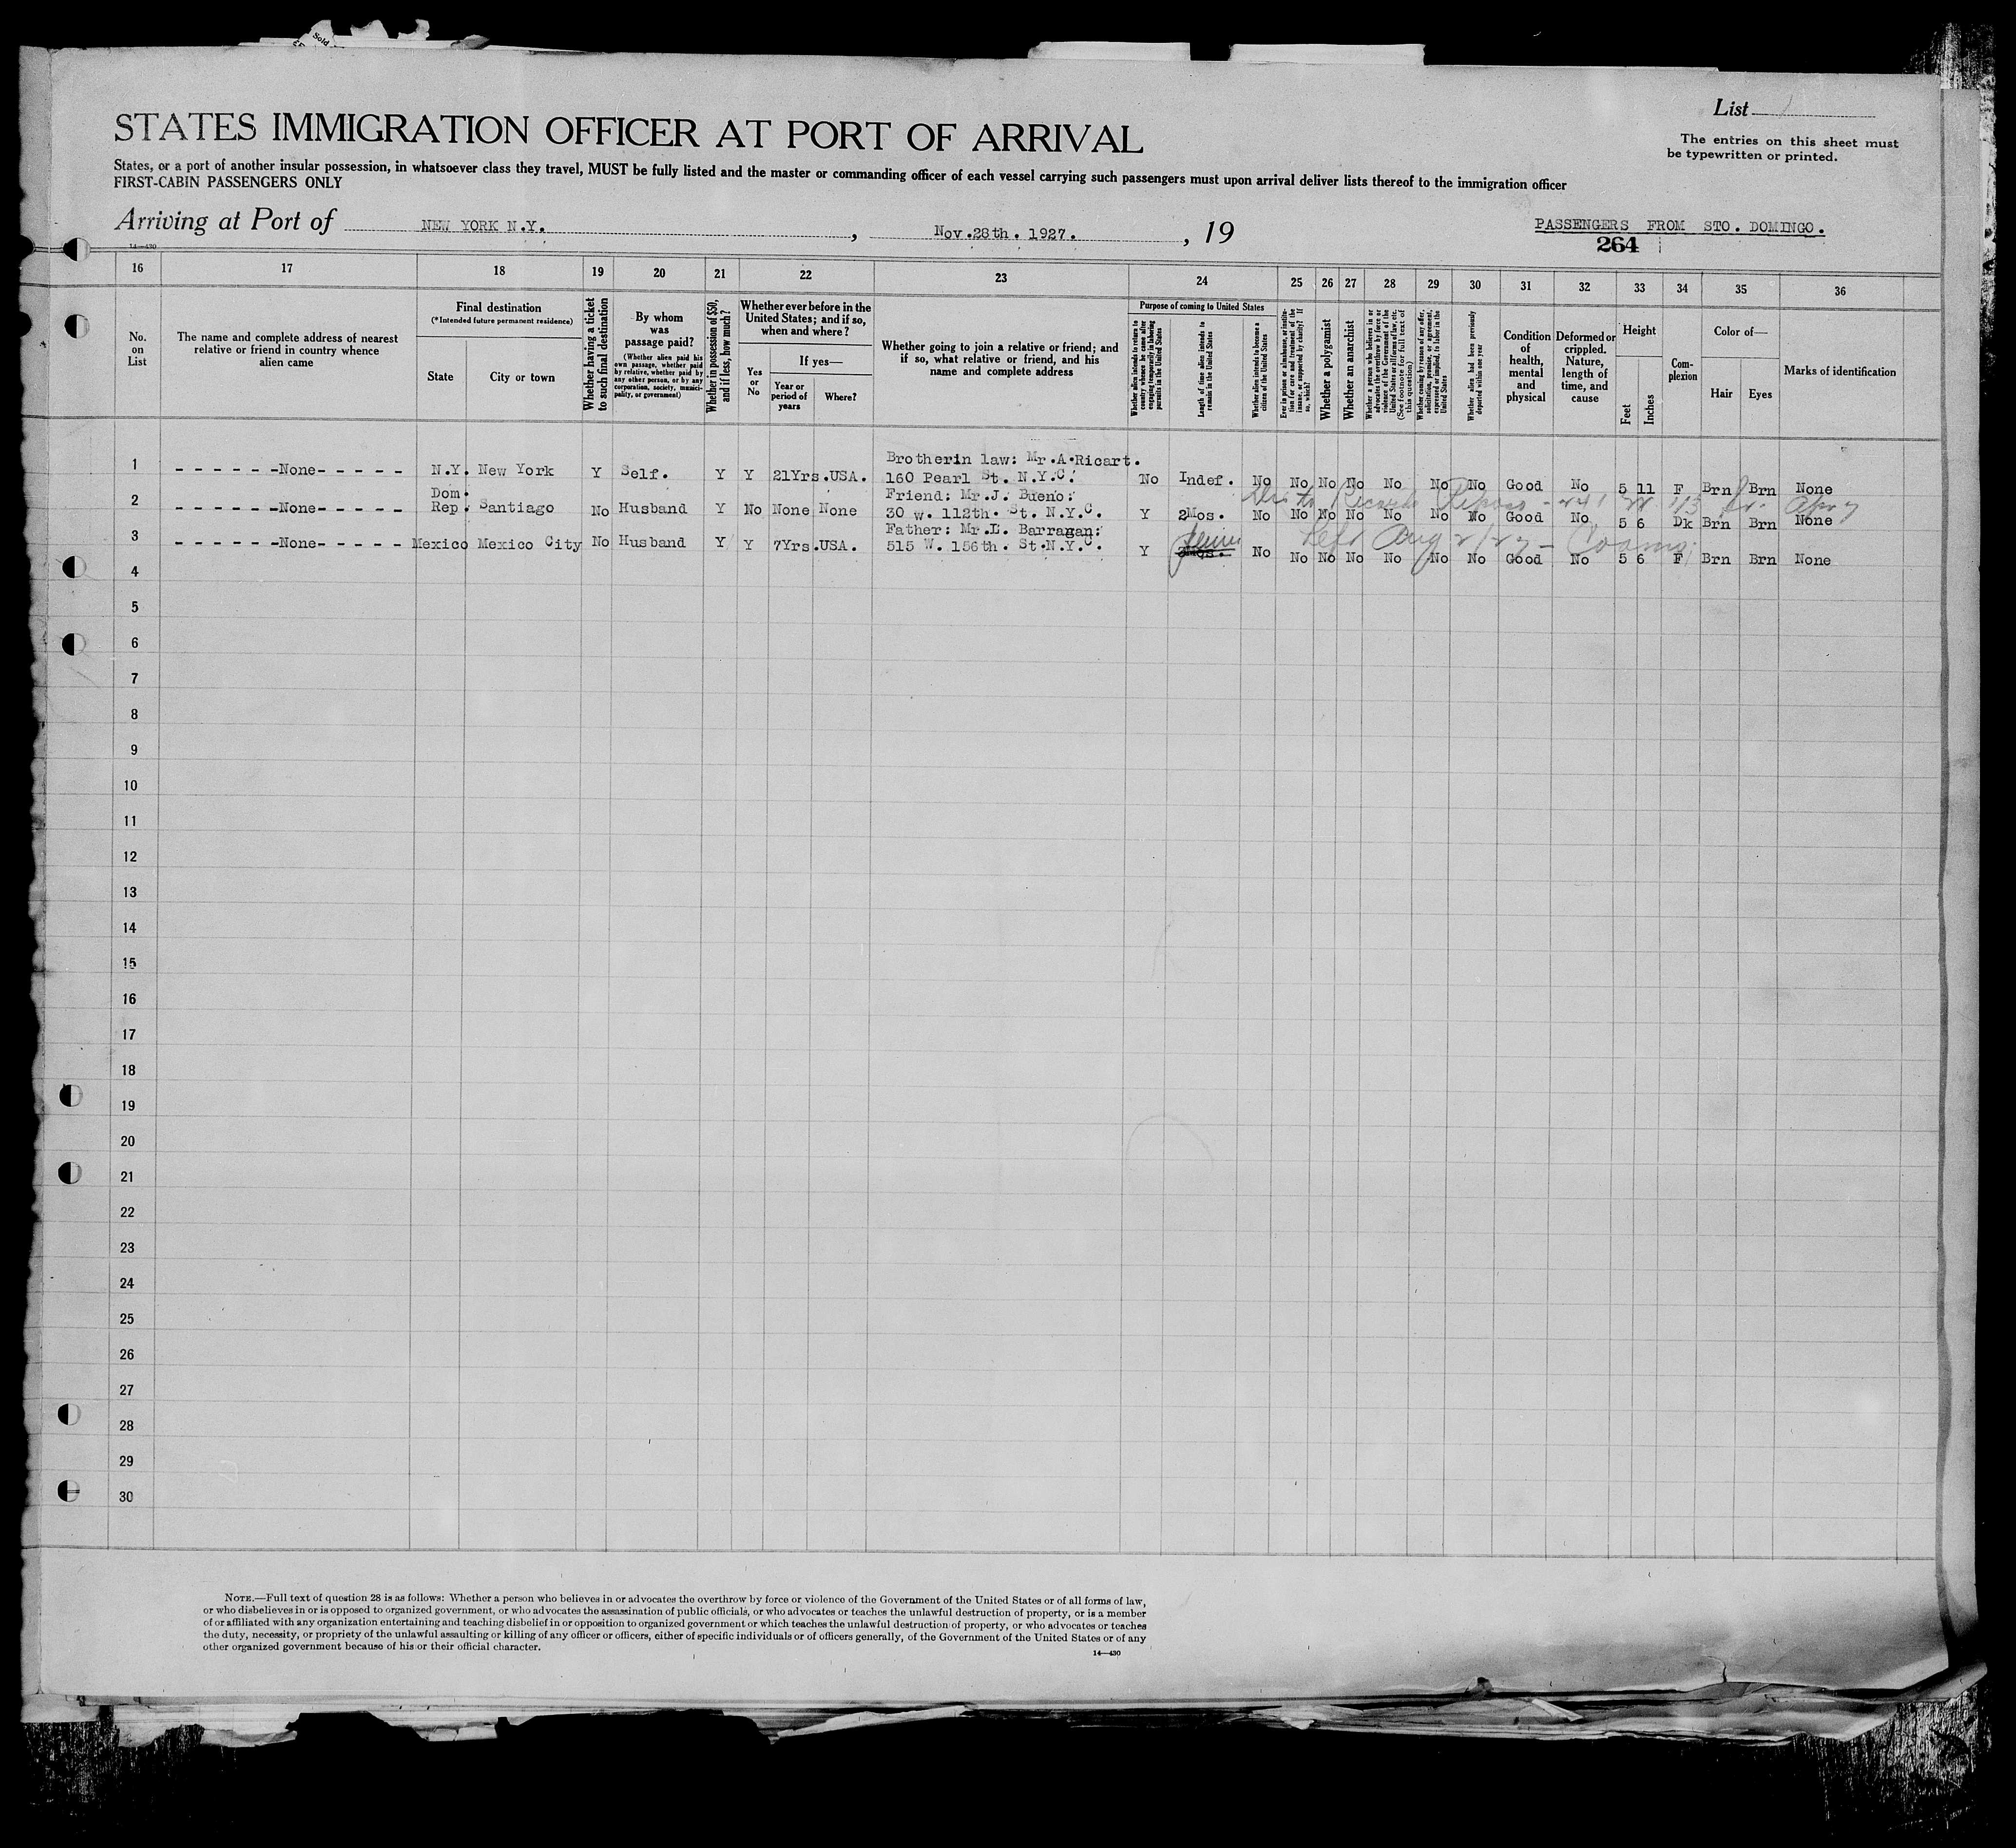 Sold
List
STATES IMMIGRATION OFFICER AT PORT OF ARRIVAL
The entries on this sheet must
be typewritten or printed.
States, or a port of another insular possession, in whatsoever class they travel, MUST be fully listed and the master or commanding officer of each vessel carrying such passengers must upon arrival deliver lists thereof to the immigration officer
FIRST-CABIN PASSENGERS ONLY
Arriving at Port of NEW YORK N.Y. , Nov.28th. 1927. , 19
PASSENGERS FROM STO. DOMINGO.
264
14—430
16 17 18 19 20 21 22 23 24 25 26 27 28 29 30 31 32 33 34 35 36
No.
on
List
The name and complete address of nearest
relative or friend in country whence
alien came
Final destination
(*Intended future permanent residence)
State
City or town
Whether having a ticket
to such final destination
By whom
was
passage paid?
(Whether alien paid his
own passage, whether paid
by relative, whether paid by
any other person, or by any
corporation, society, munici-
pality, or government)
Whether in possession of $50,
and if less, how much?
Whether ever before in the
United States; and if so,
when and where?
Yes
or
No
If yes—
Year or
period of
years
Where?
Whether going to join a relative or friend; and
if so, what relative or friend, and his
name and complete address
Purpose of coming to United States
Whether alien intends to return to
country whence he came after
engaging temporarily in laboring
pursuits in the United States
Length of time alien intends to
remain in the United States
Whether alien intends to become a
citizen of the United States
Ever in prison or almshouse, or institu-
tion for care and treatment of the
insane, or supported by charity? If
so, which?
Whether a polygamist
Whether an anarchist
Whether a person who believes in or
advocates the overthrow by force or
violence of the Government of the
United States or all forms of law, etc.
(See footnote for full text of
this question)
Whether coming by reason of any offer,
solicitation, promise, or agreement,
expressed or implied, to labor in the
United States
Whether alien had been previously
deported within one year
Condition
of
health,
mental
and
physical
Deformed or
crippled.
Nature,
length of
time, and
cause
Height
Feet
Inches
Com-
plexion
Color of—
Hair
Eyes
Marks of identification
Brotherin law: Mr.A.Ricart.
1 - - - - - -None- - - - - N.Y. New York Y Self. Y Y 21Yrs.USA. 160 Pearl St. N.Y.C. No Indef. No No No No No No No Good No 5 11 F Brn Brn None
Dom.
Friend: Mr.J. Bueno:
2 - - - - - -None- - - - - Rep. Santiago No Husband Y No None None 30 w. 112th. St. N.Y.C. Y 2Mos. No No No No No No No Good No 5 6 Dk Brn Brn None
Father: Mr.L. Barragan:
3 - - - - - -None- - - - - Mexico Mexico City No Husband Y Y 7Yrs.USA. 515 W. 156th. St.N.Y.C. Y No No No No No No No Good No 5 6 F Brn Brn None
4
5
6
7
8
9
10
11
12
13
14
15
16
17
18
19
20
21
22
23
24
25
26
27
28
29
30
NOTE.—Full text of question 28 is as follows: Whether a person who believes in or advocates the overthrow by force or violence of the Government of the United States or of all forms of law,
or who disbelieves in or is opposed to organized government, or who advocates the assassination of public officials, or who advocates or teaches the unlawful destruction of property, or is a member
of or affiliated with any organization entertaining and teaching disbelief in or opposition to organized government or which teaches the unlawful destruction of property, or who advocates or teaches
the duty, necessity, or propriety of the unlawful assaulting or killing of any officer or officers, either of specific individuals or of officers generally, of the Government of the United States or of any
other organized government because of his or their official character.
14—430